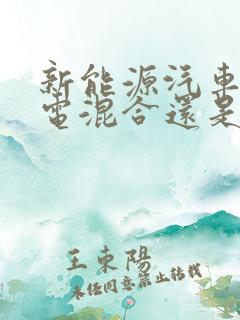 新能源汽車
電混合還是
王東陽
未经同意禁止转载